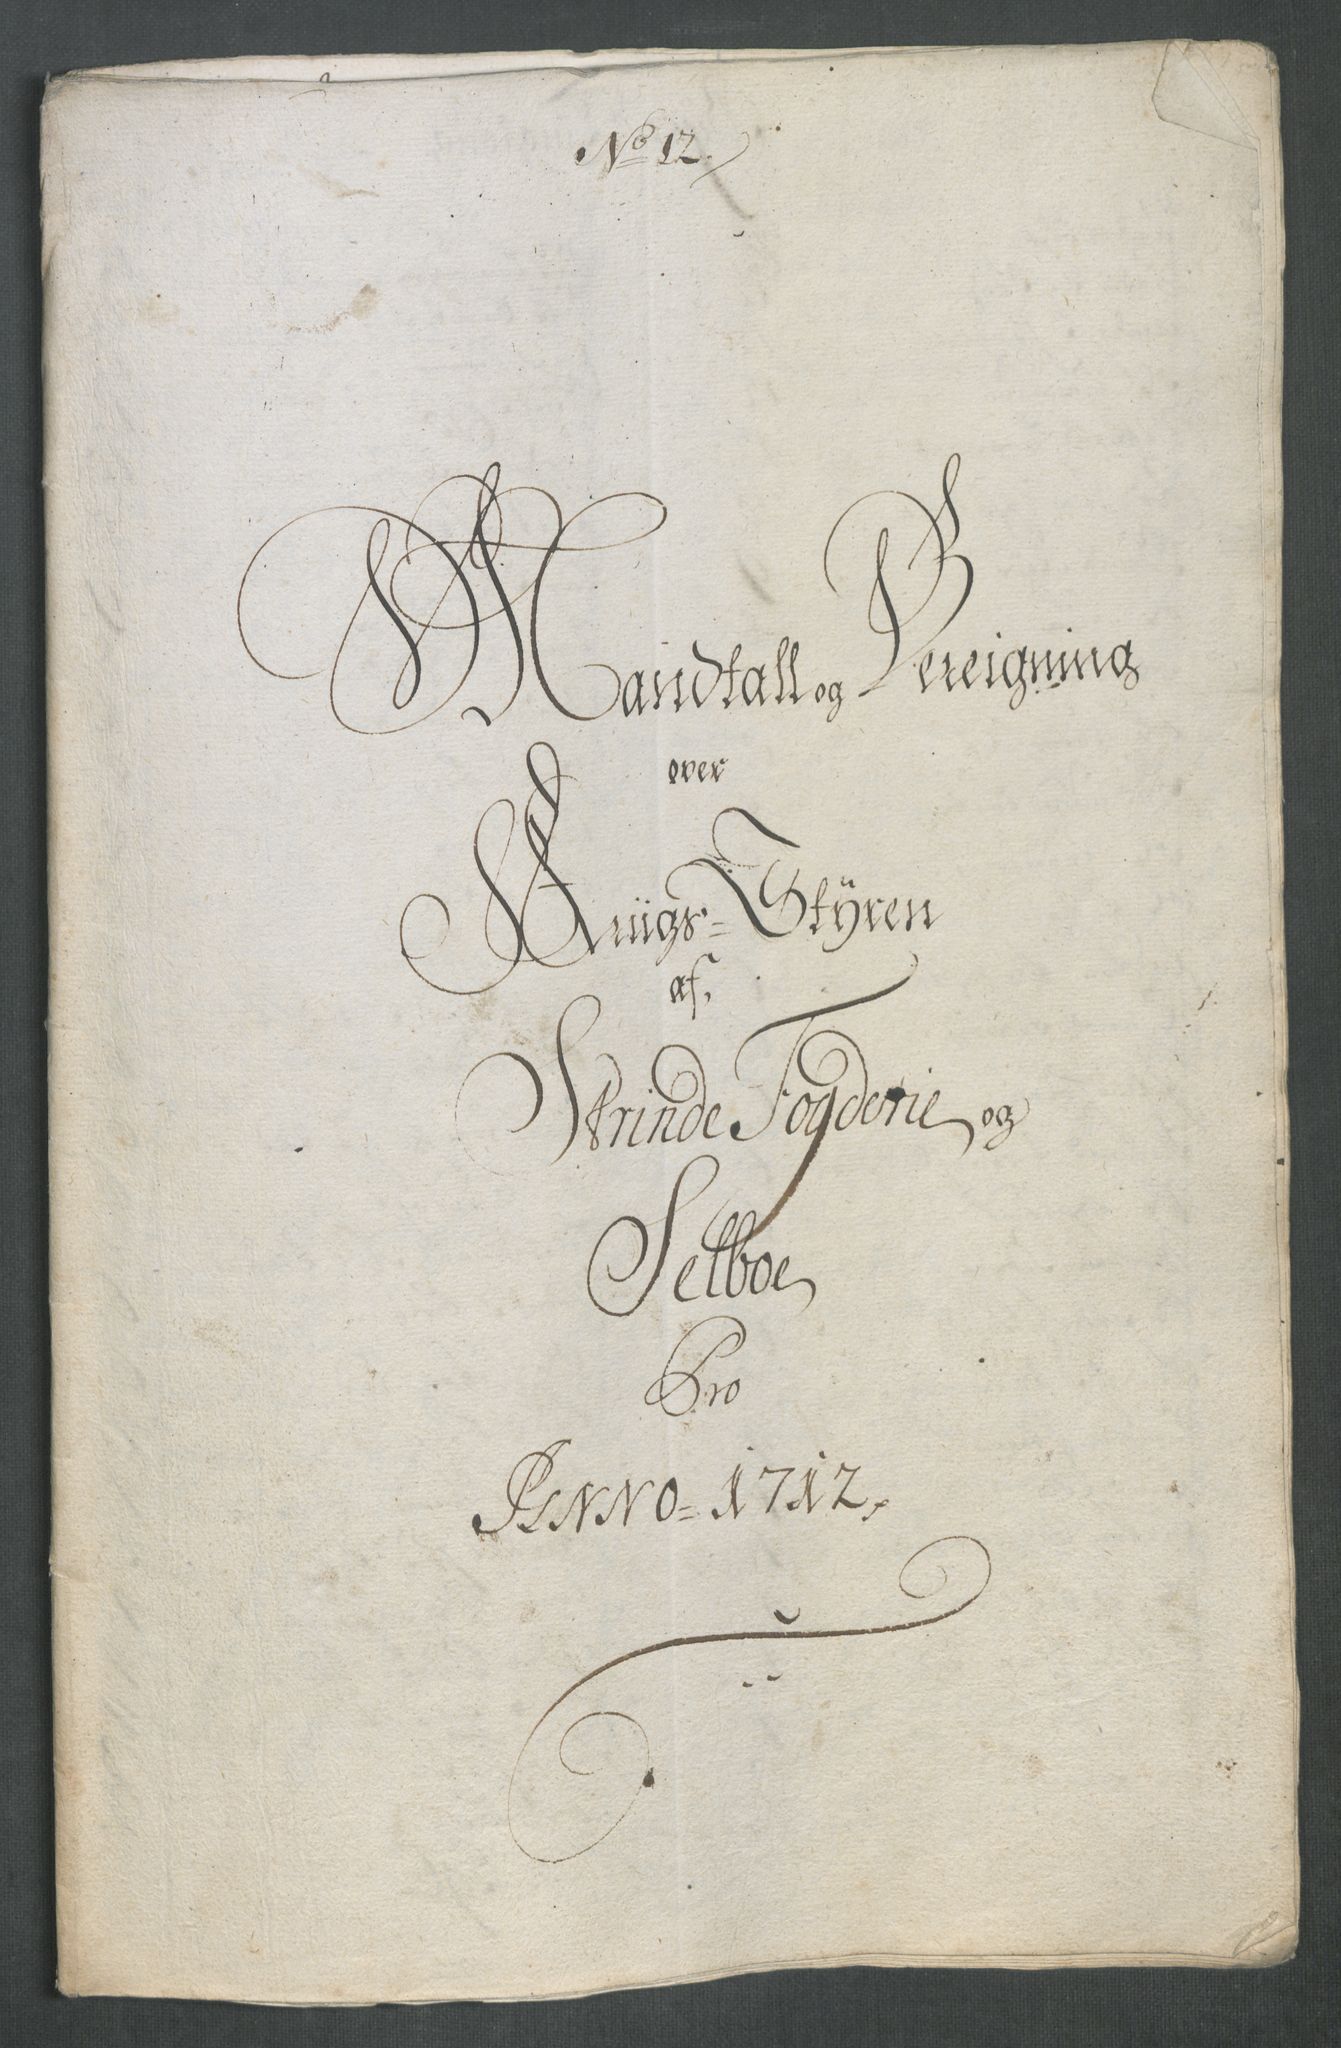 No 12.
Mandtall og Bereigning
over
Kriigs-Stÿren
af
Strinde Fogderie og
Selboe
Pro
ANNO = 1712.